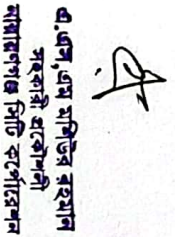 এ.এস,এম মশিউর রহমান
সহকারী প্রকৌশলী
নারায়ণগঞ্জ সিটি কর্পোরেশন